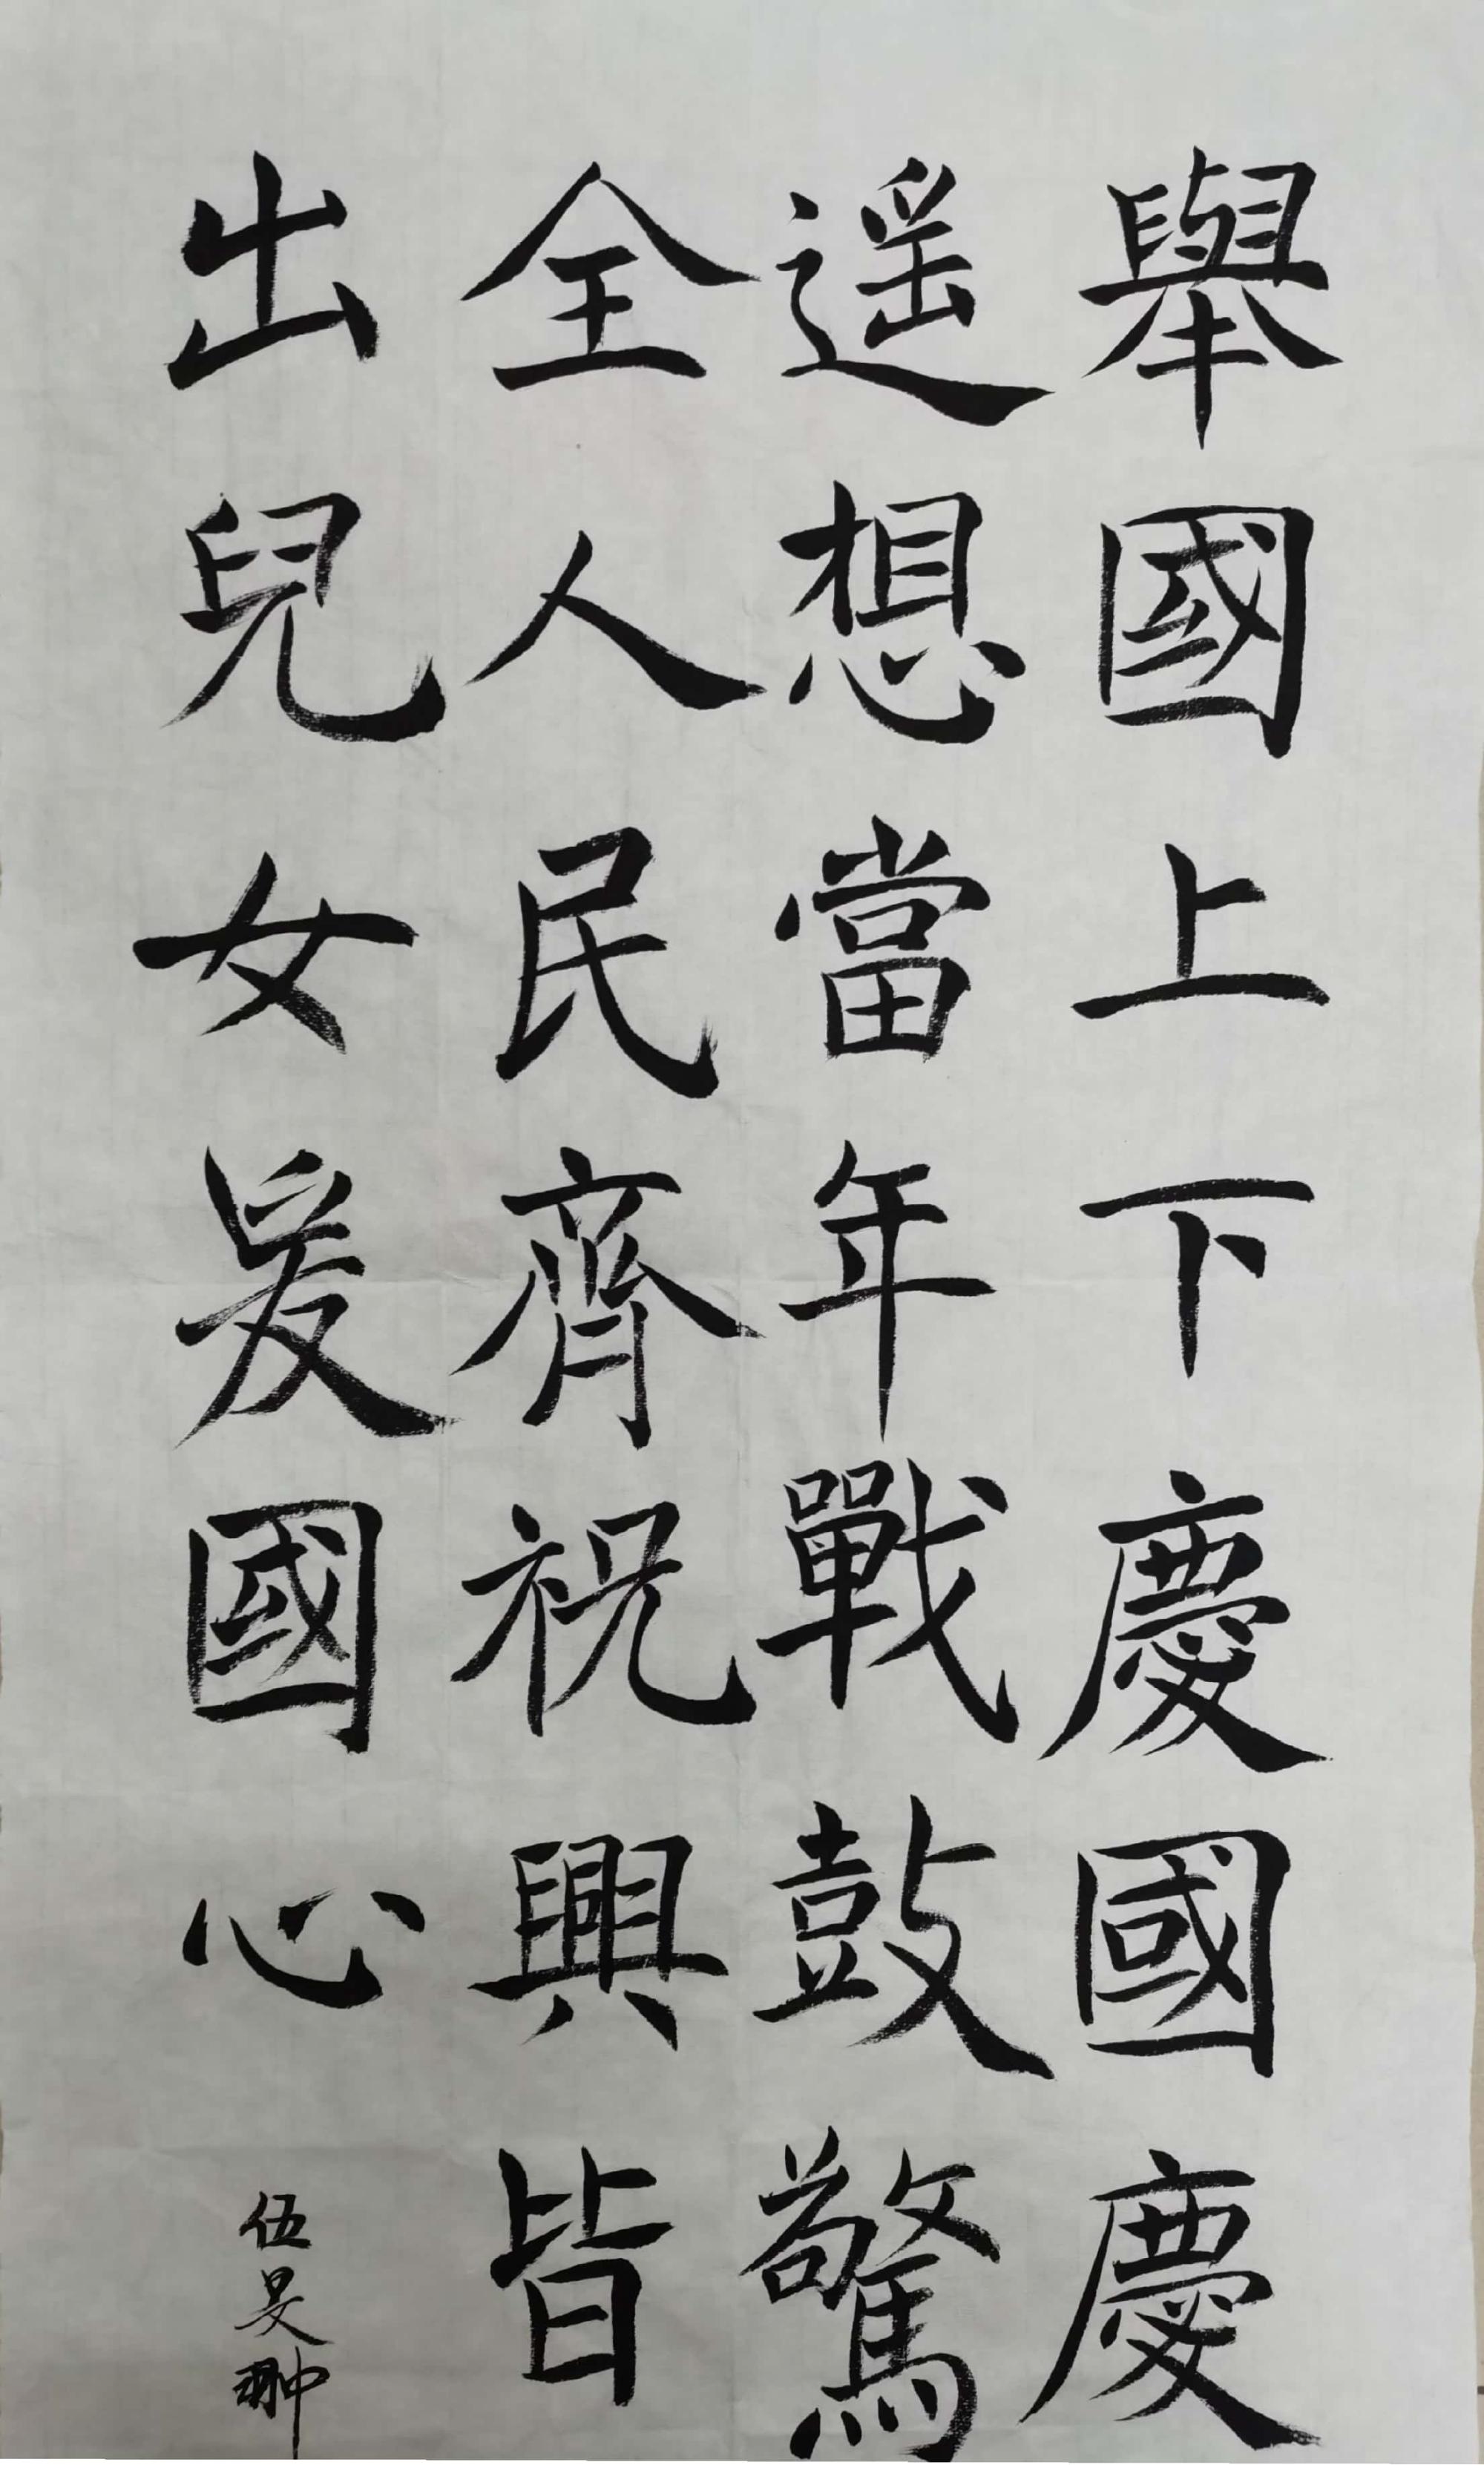 舉國上下慶國慶
遥想當年戰鼓驚
全人民齊祝興皆
出兒女爰國心
伍昊翀